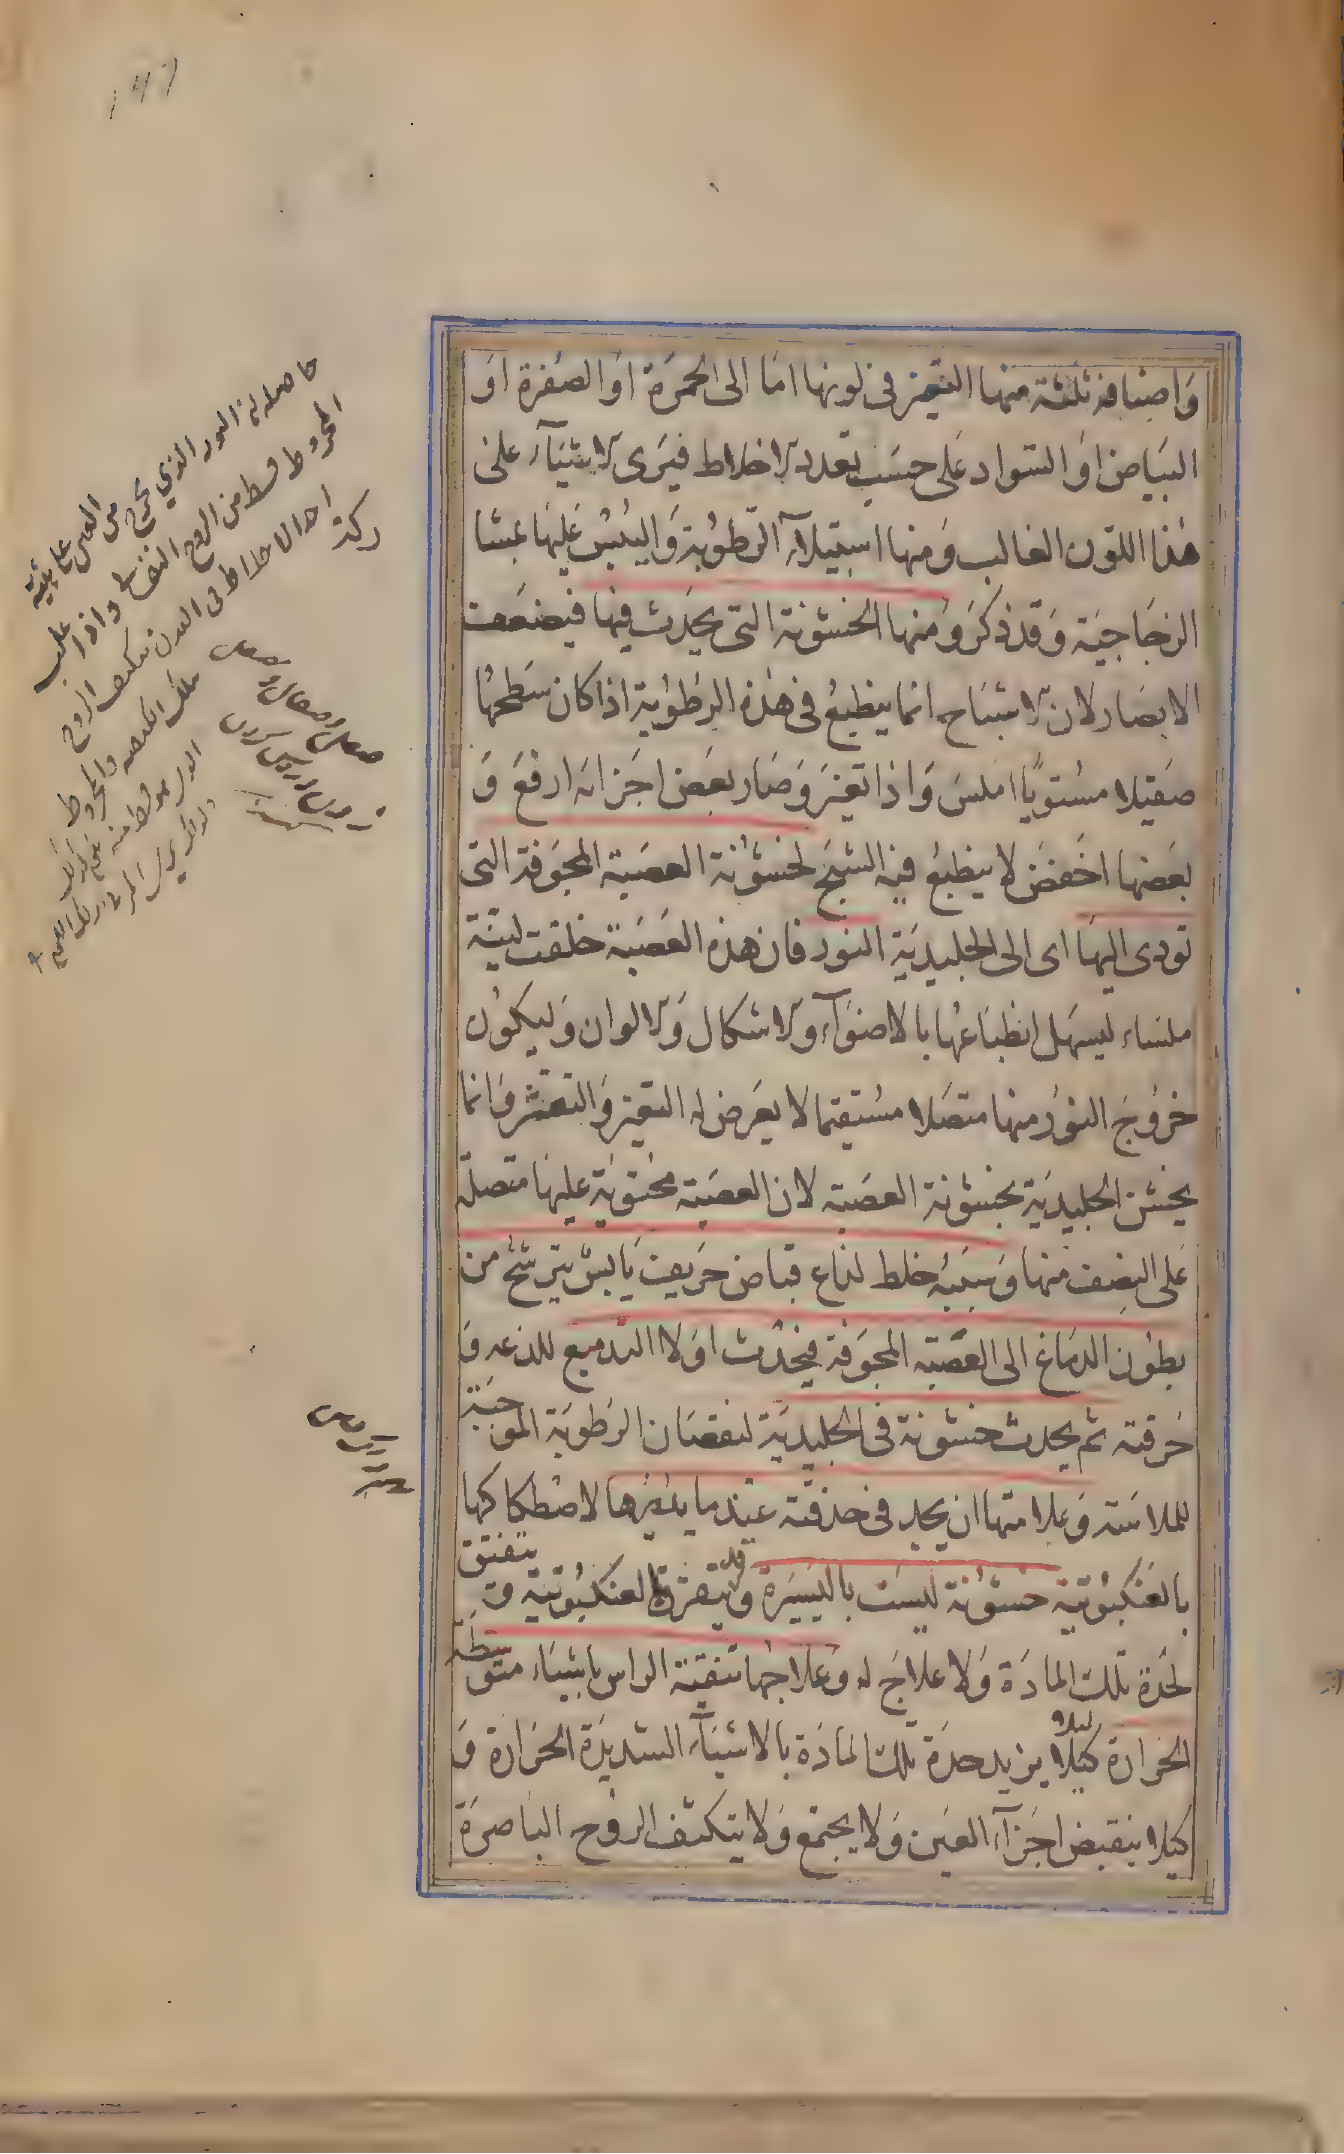 ١٩٦
واصنافه ثلثة منها التغير فى لونها اما الى الحمرة او الصفرة او
البياض او السواد على حسب تعدد الاخلاط فيرى الاشياء على
هذا اللون الغالب ومنها استيلاء الرطوبة واليبس عليها بمشا
الزجاجية وقد ذكر ومنها الخشونة التى يحدث فيها فيضعف
الابصار لان الاشباح انما ينطبع فى هذه الرطوبة اذا كان سطحها
صقيلا مستويا املس واذا تغير وصار بعض اجزائه ارفع و
بعضها اخفض لا ينطبع فيه الشبح لخشونة العصبة المجوفة التى
تودى اليها اى الى الجليدية النور فان هذه العصبة خلقت لينة
ملساء ليسهل انطباعها بالاضواء والاشكال والالوان وليكون
خروج النور منها متصلا مستقيما لا يعرض له التغير والتعثر وانما
يخشن الجليدية بخشونة العصبة لان العصبة محتوية عليها متصلة
على النصف منها وسببه خلط لذاع قباض حريف يابس يترشح من
بطون الدماغ الى العصبة المجوفة فيحدث اولا التدميع للذعه و
حرقته ثم يحدث خشونة فى الجليدية لنقصان الرطوبة الموجبة
للملاسة وعلامتها ان يجد فى حدقته عندما يديرها لاصطكاكها
بالعنكبوتية خشونة ليست باليسيرة وقد يتقرح العنكبوتية و يتفتق
لحدة تلك المادة ولا علاج له وعلاجها تنقية الراس باشياء متوسطة
الحرارة كيلا يزيد حدة تلك المادة بالاشياء الشديدة الحرارة و
لئلا
كيلا ينقبض اجزاء العين ولا يجتمع ولا يتكثف الروح الباصرة
حاصله ان النور الذي يخرج من العين على هيئة
المخروط قسط من الروح النفساني واذا غلب
احد الاخلاط فى البدن تكيف الروح